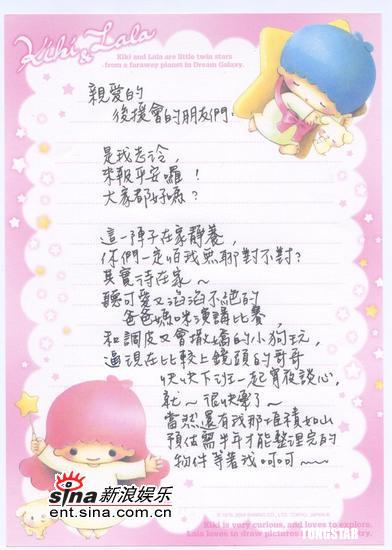 Kiki & Lala
Kiki and Lala are little twin stars
from a faraway planet in Dream Galaxy.
親愛的
後援會的朋友們:
是我志玲,
來報平安囉!
大家都好嗎?
這一陣子在家靜養,
你們一定怕我無聊對不對?
其實待在家~
聽可愛又滔滔不絕的
爸爸媽咪演講比賽,
和調皮又會撒嬌的小狗玩,
逼現在比較上鏡頭的哥哥
快快下班一起宵夜談心,
就~很快樂了~
當然還有我那堆積如山
預估需半年才能整理完的
物件等著我呵呵~~
sina新浪娱乐
ent.sina.com.cn
TUNGSTAR
Kiki is very curious, and loves to explore.
Lala loves to draw pictures